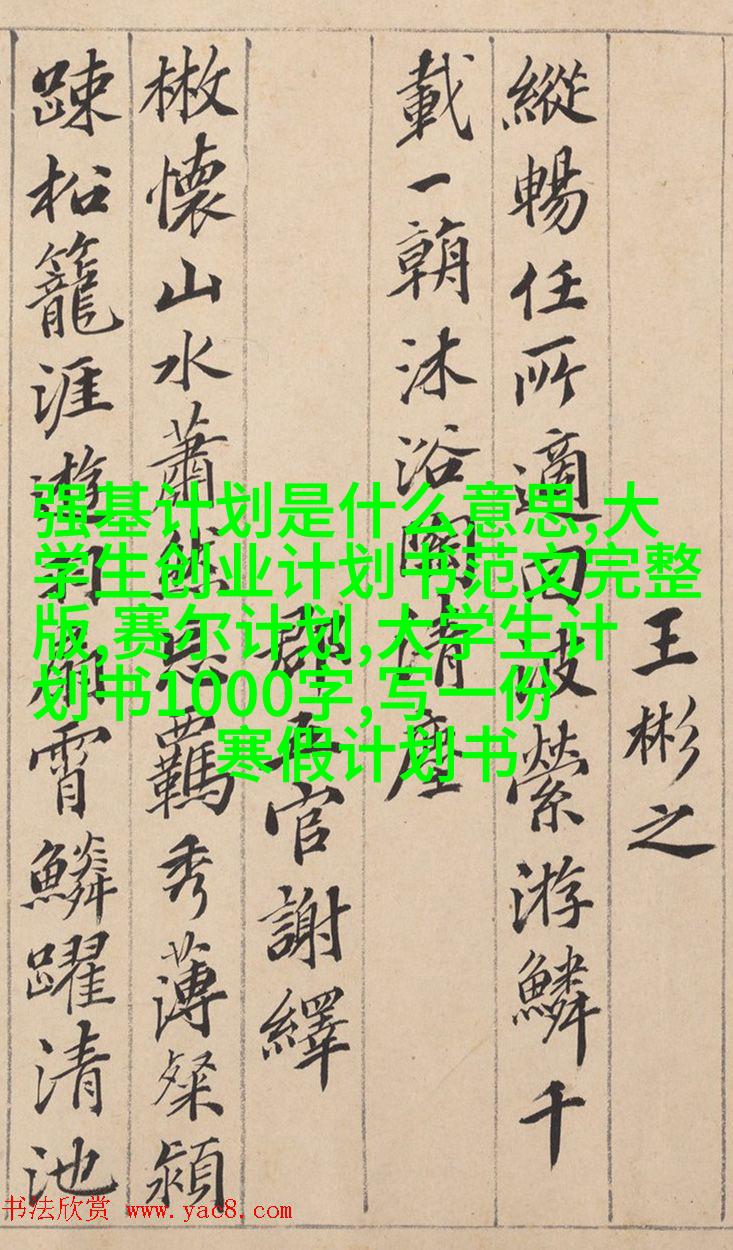 王彬之
縱暢任所適回波縈游鱗千
載一朝沐浴陶清塵
郡五官謝繹
散懷山水蕭然忘羈秀薄粲潁
踈松籠涯遊羽扇霄鱗躍清池
强基计划是什么意思,大
学生创业计划书范文完整
版,赛尔计划,大学生计
划书1000字,写一份
寒假计划书
书法欣赏 www.yac8.com